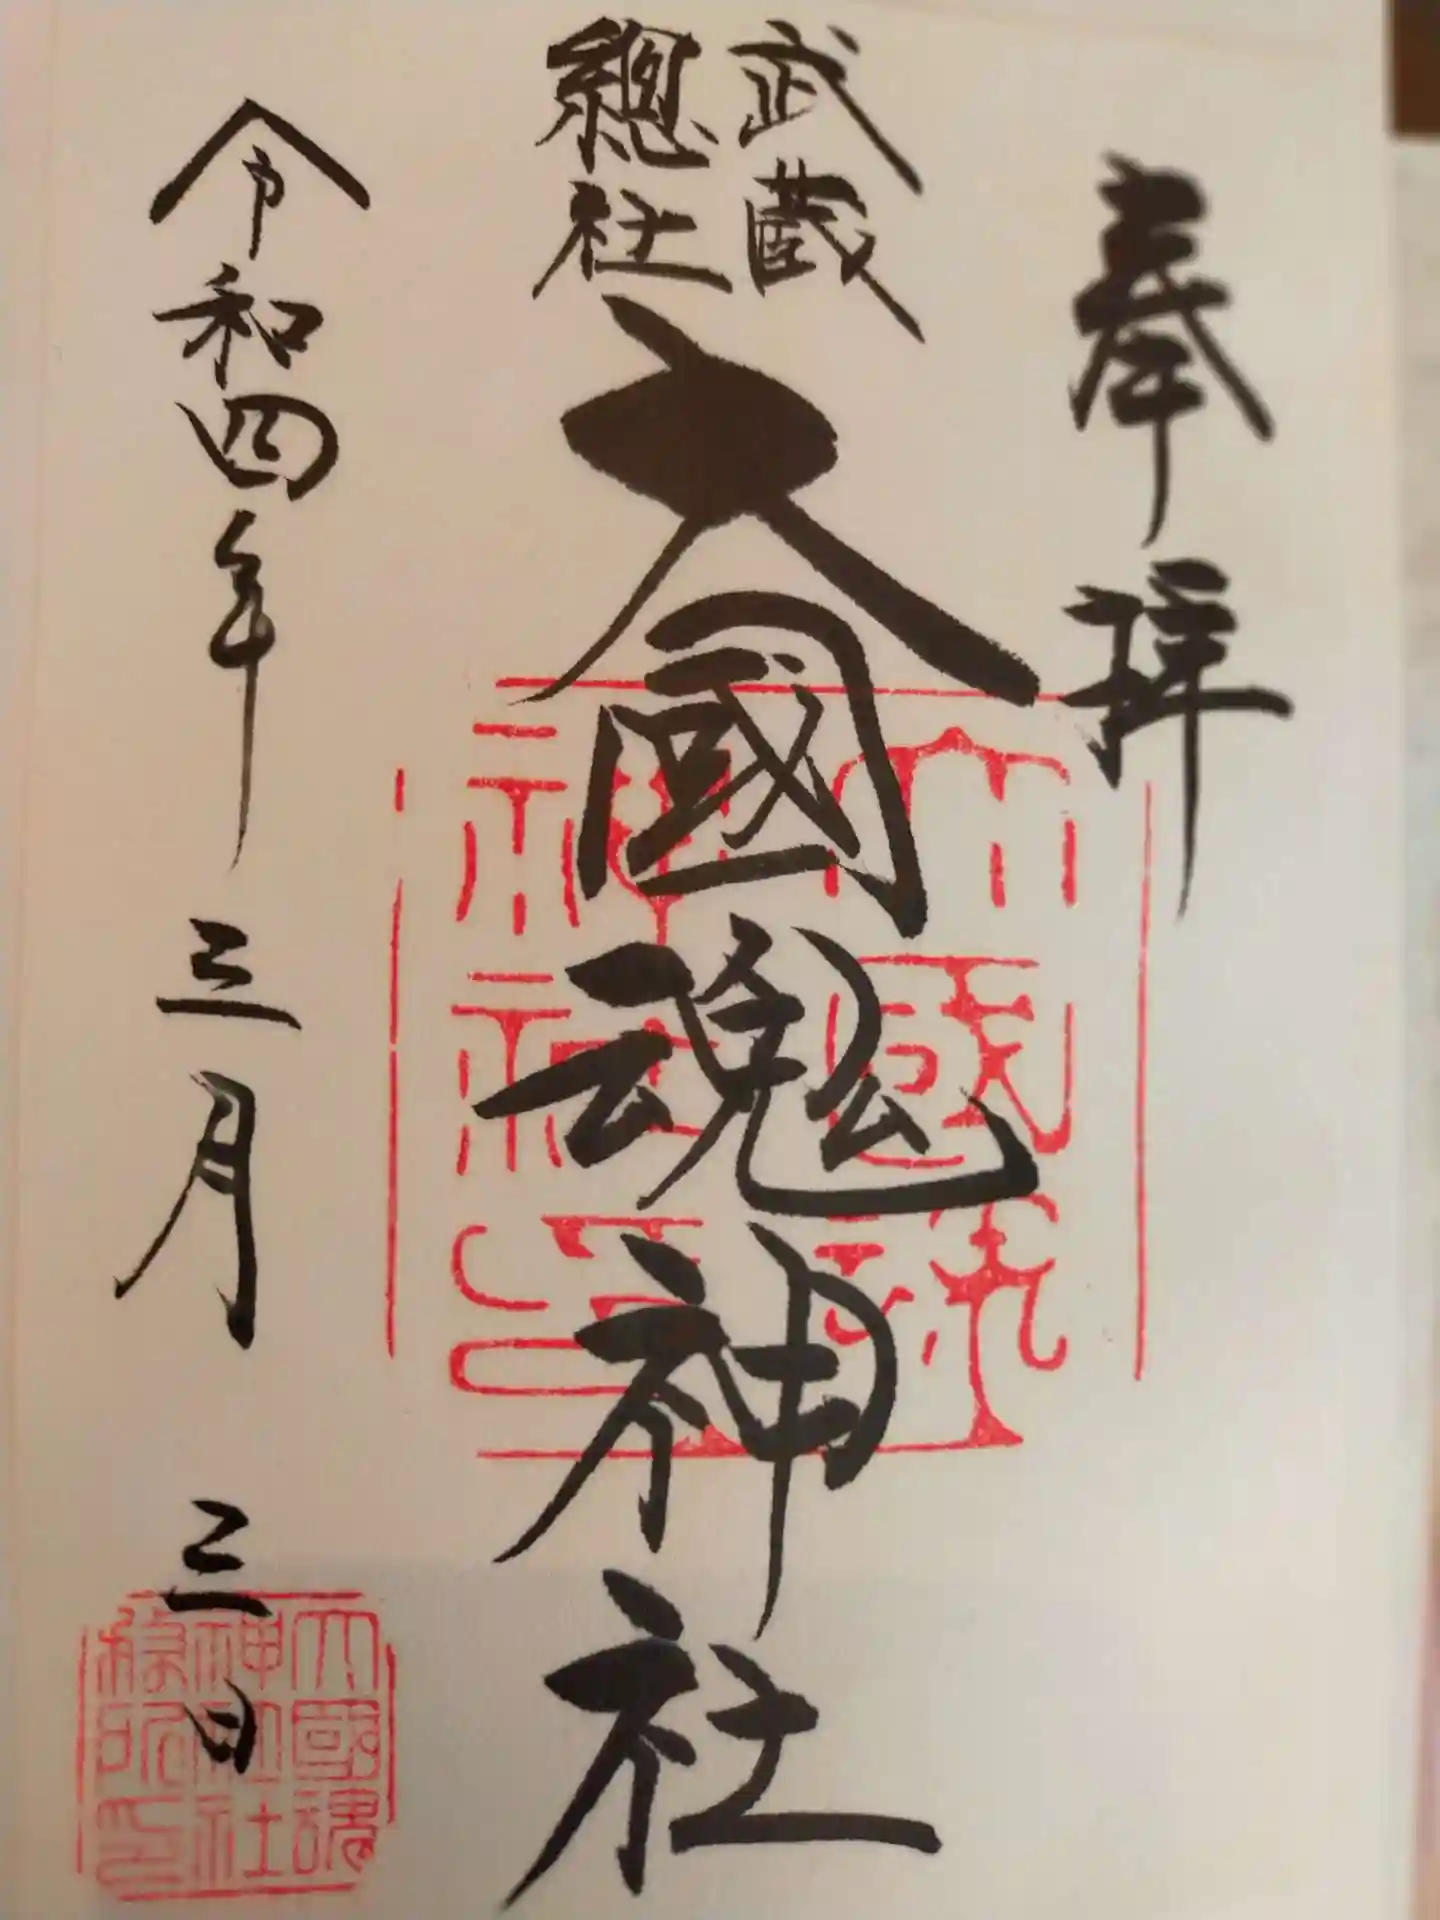 奉拝
武蔵
總社
大國魂神社
令和四年三月三日
大國魂
神社
大國魂
神社社
務所印